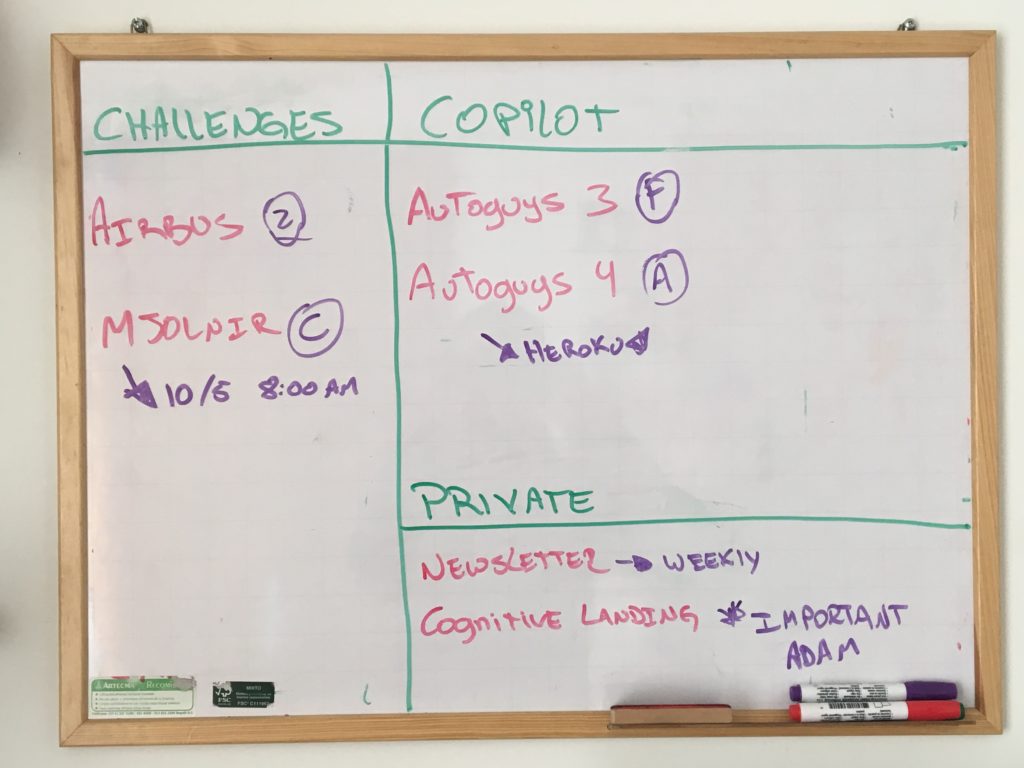 CHALLENGES
AIRBUS 2
MJOLNIR C
10/5 8:00 AM
COPILOT
AUTOguys 3 F
AUTOguys 4 A
HEROKU
PRIVATE
NEWSLETTER → WEEKLY
COgnitiVE LANDING * IMPORTANT
ADAM
ARTECMA RECOMI
MIXTO
FSC